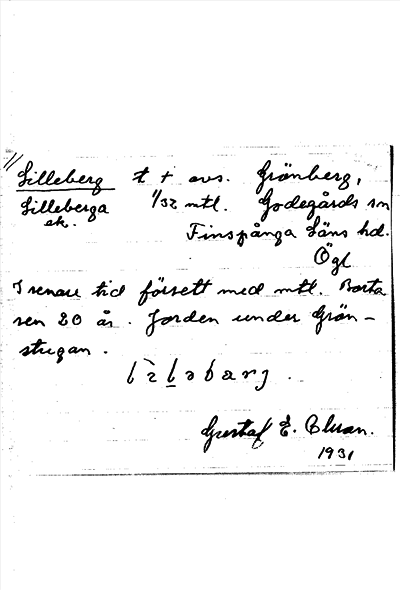 Lilleberg t + avs. Grönberg,
Lilleberga 1/32 mtl. Godegårds sn
ek. Finspånga läns hd.
Ögl
I senare tid försett med mtl. Borta
sen 20 år. Jorden under Grön-
stugan.
Gustaf E.
1931